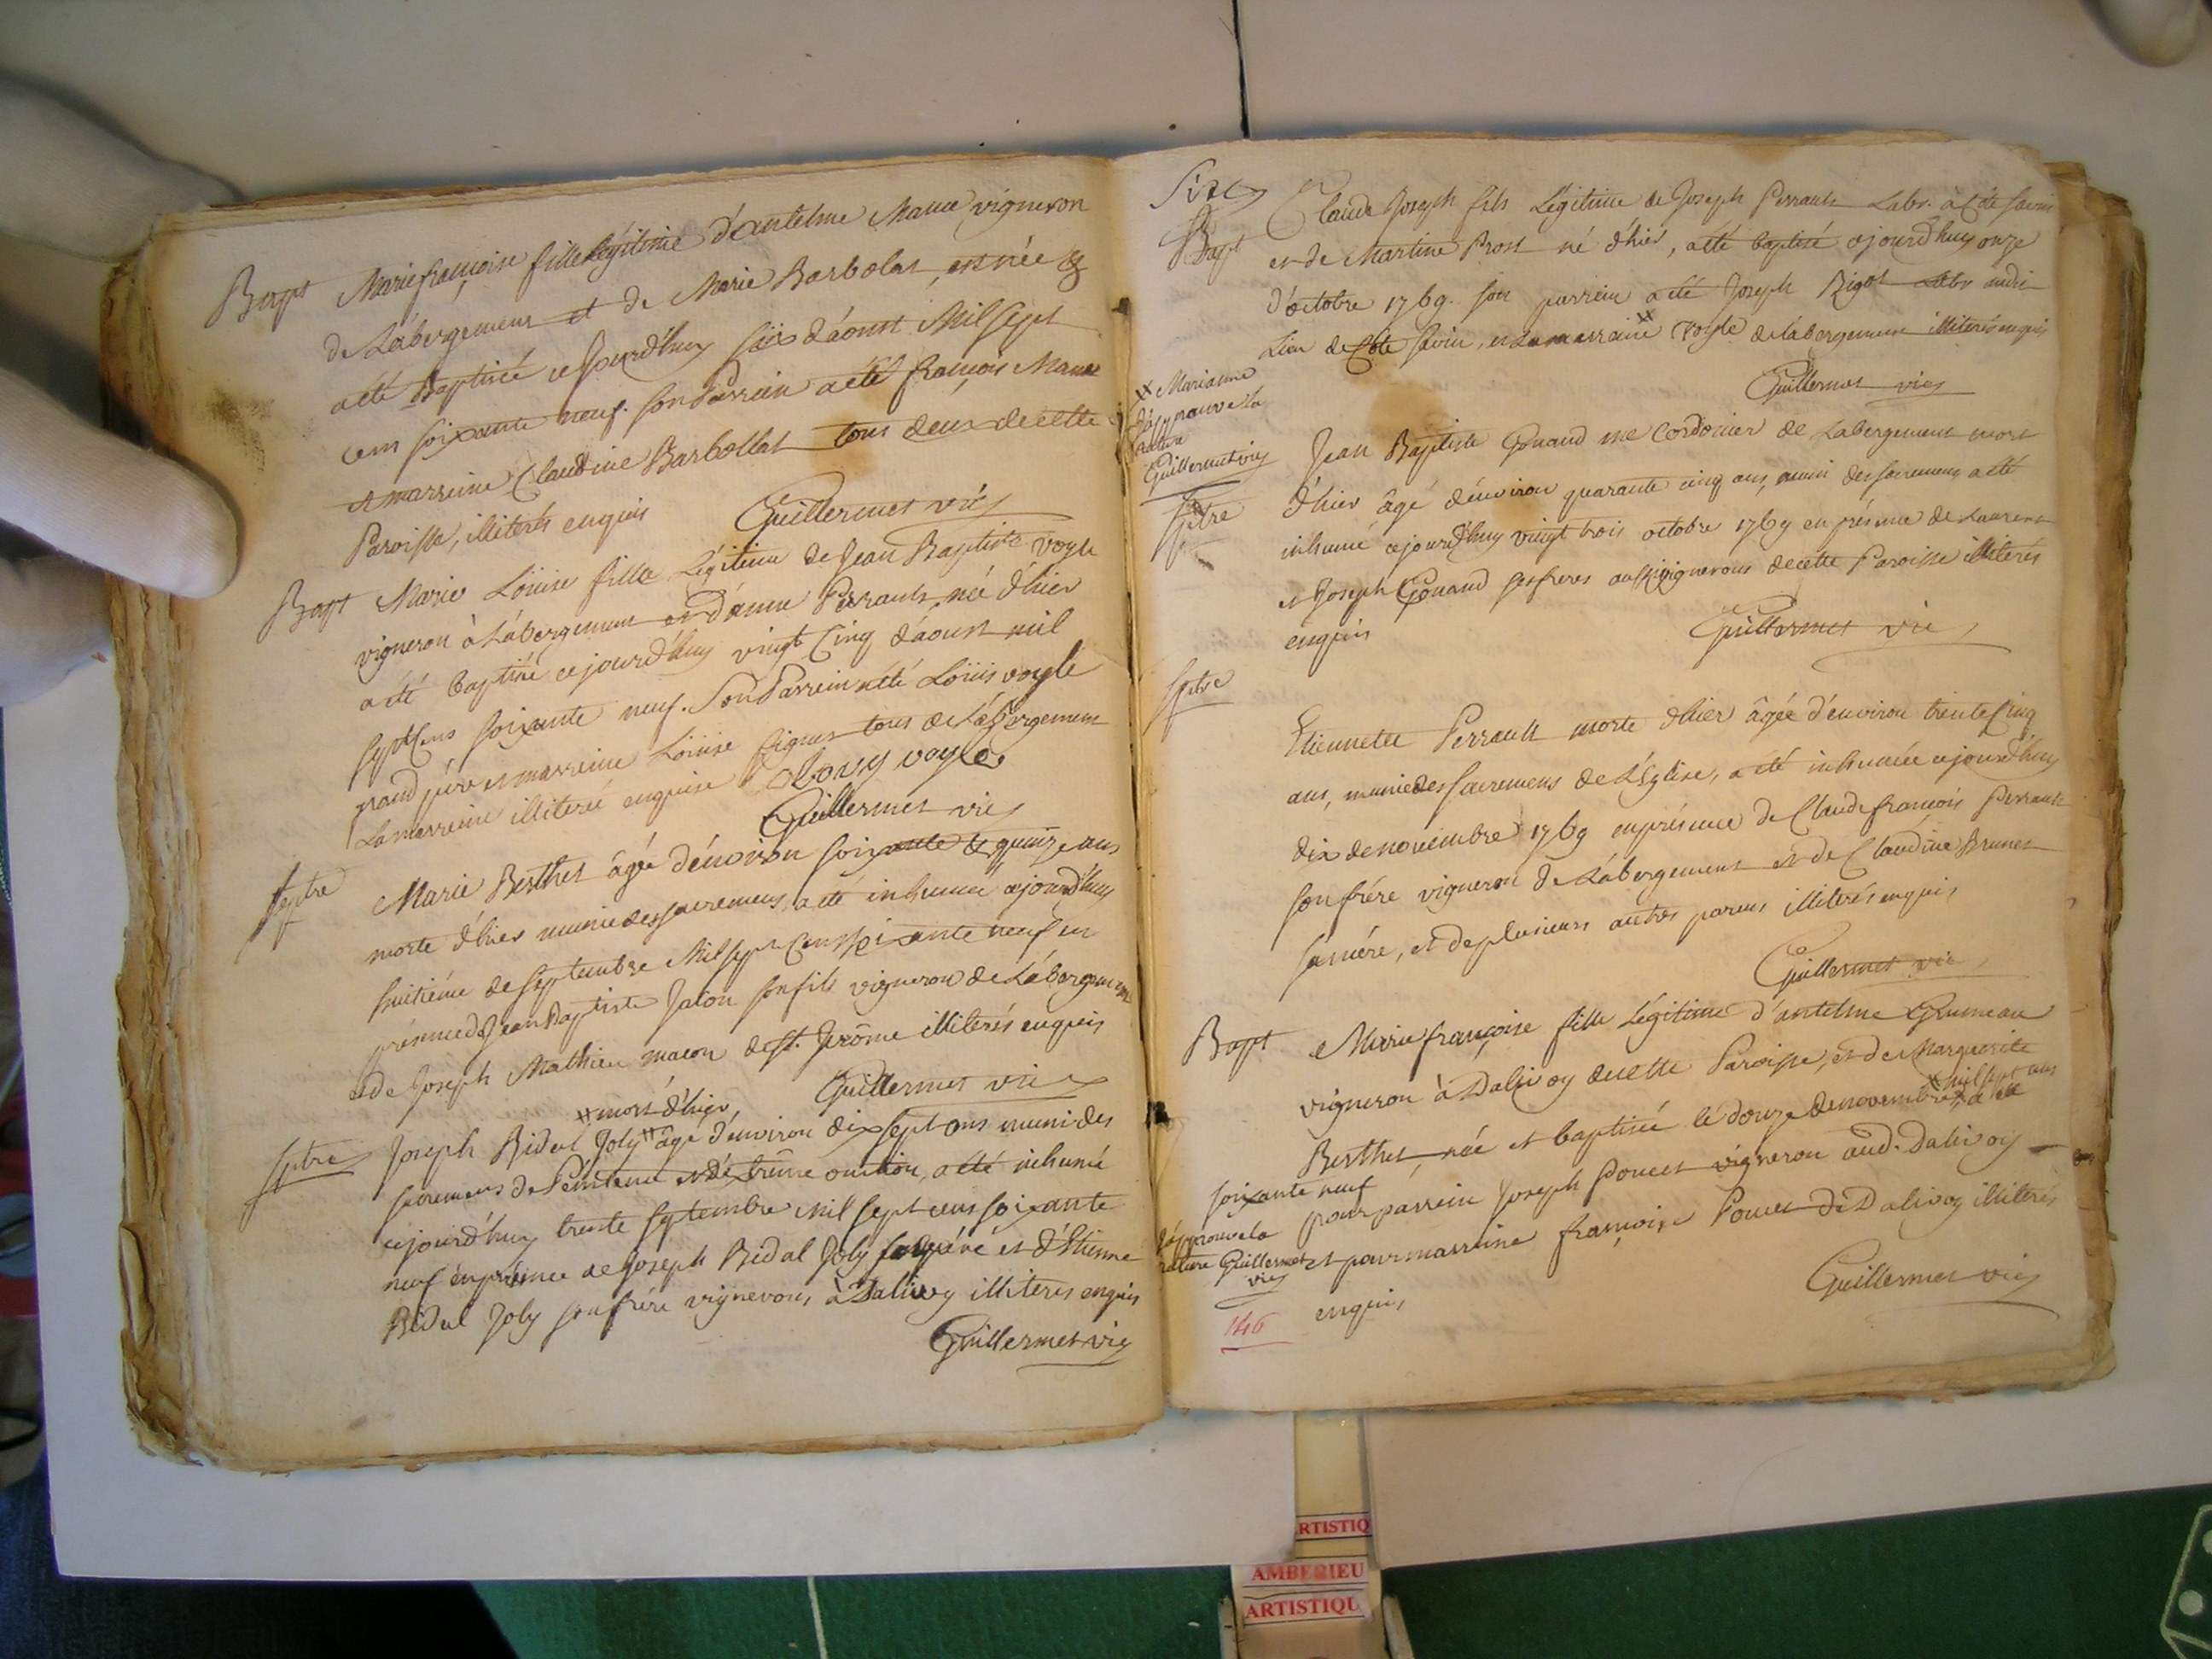 Bapt Marie françoise fille légitime d'antelme Mame vigneron
de Labergement et de Marie Barbolat, est née &
a été Baptisée ce jourd'huy six d'aoust Mil sept
cent soixante neuf. son Parrein a été françois Mame
et marreine Claudine Barbollat tous deux de cette
Paroisse, illiterés enquis Guillermet vic
Bapt Marie Loüise fille Légitime de Jean Baptiste Voyle
vigneron à Labergement et d'anne Perrault, née d'hier
a été baptisée cejourd'huy vingt Cinq d'aoust mil
sept Cens soixante neuf. Son Parrein a été Loüis voyle
grand père et marreine Loüise tous de Labergement
La marreine illiterée enquise Lovys voyle
Guillermet vic
sptre Marie Berthet âgée d'environ soixante & quinze ans
morte d'hier munie des sacremens, a été inhumée cejourd'huy
huitiéme de septembre Mil sept Cens soixante neuf en
présence de Jean Baptiste Jaion son fils vigneron de Labergement
et de Joseph Mathieu macon de st. Jerôme illiterés enquis
Guillermet vic
# mort d'hier,
sptre Joseph Bidal Joly # âgé d'environ dix sept ans muni des
sacremens de Pénitence et d'extrême onction, a été inhumé
cejourd'huy trente septembre mil sept cens soixante
neuf en présence de Joseph Bidal Joly son père et d'Etienne
Bidal Joly son frére vignerons à Dalivoy illiterés enquis
Guillermet vic
Bapt Claude Joseph fils Légitime de Joseph Perrault Labr. à Côte savin
et de Martine Prost né d'hier, a été baptisé ajourd'huy onze
d'octobre 1769. son parrein a été Joseph Bigot
Lieu de Côte savin, et La marraine # voyle de Labergement illiterés enquis
Guillermet vic
# Marianne
J'approuve la
rature
Guillermet vic
sptre Jean Baptiste Gonand me Cordonier de Labergement mort
d'hier âgé d'environ quarante cinq ans, muni des sacremens a été
inhumé cejourd'huy vingt trois octobre 1769 en présence de Laurent
et Joseph Gonand ses freres aussi vignerons de cette Paroisse illiterés
enquis Guillermet vic
sptre
Etiennette Perrault morte d'hier âgée d'environ trente Cinq
ans, munie des sacremens de L'Eglise, a été inhumée cejourd'huy
dix de novembre 1769 en présence de Claude françois Perrault
son frére vigneron de Labergement et de Claudine Brunet
sa mére, et de plusieurs autres parens illiterés enquis
Guillermet vic
Bapt Marie françoise fille Légitime d'antelme Grumeau
vigneron à Dalivoy de cette Paroisse, et de Marguerite
# mil sept cens
Berthet, née et baptisée le douze de novembre # a été
soixante neuf
pour parrein Joseph Poncet vigneron aud. Dalivoy
J'approuve la
rature Guillermet
vic
et pour marreine françoise Poncet de Dalivoy illiterés
enquis Guillermet vic
146
RTISTIQ
AMBERIEU
ARTISTIQU